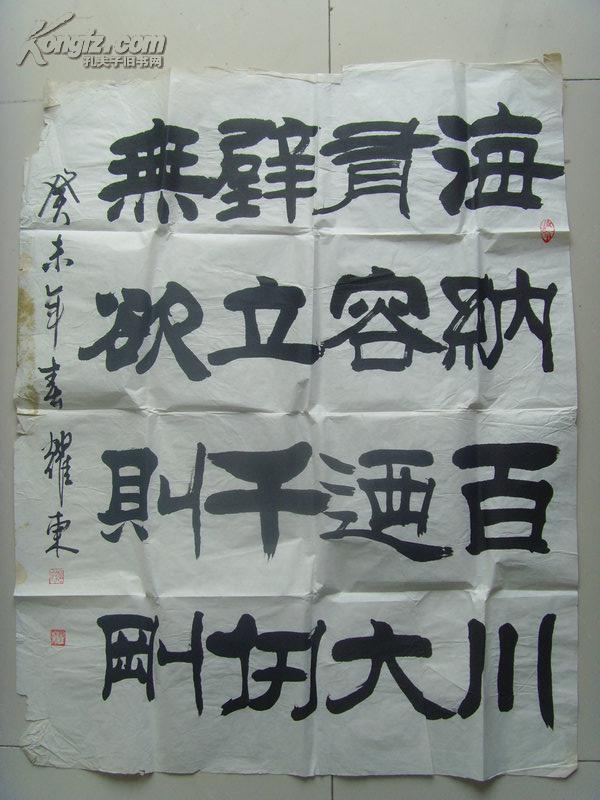 Kongfz.com
孔夫子旧书网
海納百川
有容迺大
壁立千仞
無欲則剛
癸未年春耀東